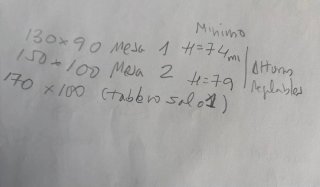 Minimo
130x90 Mesa 1 H=74m
150x100 Mesa 2 H=79
170 x100 (tablero solo 1)
Alturas